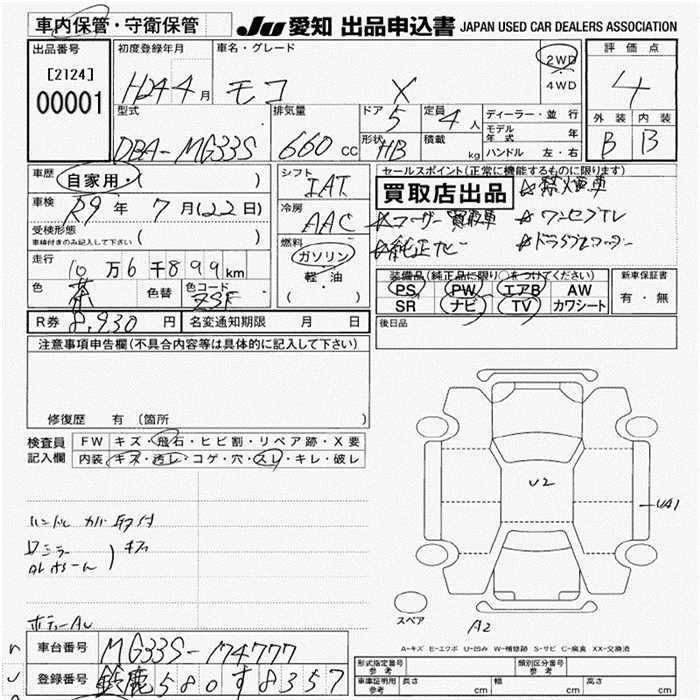 車内保管・守衛保管
JU 愛知 出品申込書 JAPAN USED CAR DEALERS ASSOCIATION
出品番号
[2124]
00001
初度登録年月
H24 4月
車名・グレード
モコ X
2WD
4WD
評価点
4
型式
DBA-MG33S
排気量
660 cc
ドア
5
定員
4人
形状
HB
積載
kg
ディーラー・並行
モデル年式 年
ハンドル 左・右
外装 内装
B B
車歴
自家用・( )
車検
R9年 7月(22日)
受検形態
車検付きのみ記入して下さい ( )
走行
10万6千899km
色
茶
色替
色コード
ZSF
シフト
IAT
冷房
AAC
燃料
ガソリン
軽油
( )
セールスポイント(正常に機能するものに限ります)
買取店出品
☆禁煙車
☆ワンオーナー 買取車 ☆ワンセグTV
☆純正ナビ ☆ドライブレコーダー
装備品(純正品に限り○をつけてください)
PS PW エアB AW
SR ナビ TV カワシート
新車保証書
有・無
R券 8,930円
名変通知期限 月 日
後日品
注意事項申告欄(不具合内容等は具体的に記入して下さい)
修復歴 有 (箇所 )
検査員記入欄
FW キズ・飛石・ヒビ割・リペア跡・X要
内装 キズ・汚レ・コゲ・穴・スレ・キレ・破レ
ハンドルカバー取付
ドアミラー
ALホイール
キズ
ボディーAU
U2
UA1
スペア
A2
A-キズ E-エクボ U-凹み W-補修跡 S-サビ C-腐食 XX-交換済
車台番号
MG33S-174777
登録番号
鈴鹿580す8357
型式指定番号
参考
類別区分番号
参考
車庫証明用
参考
長さ cm
幅 cm
高さ cm